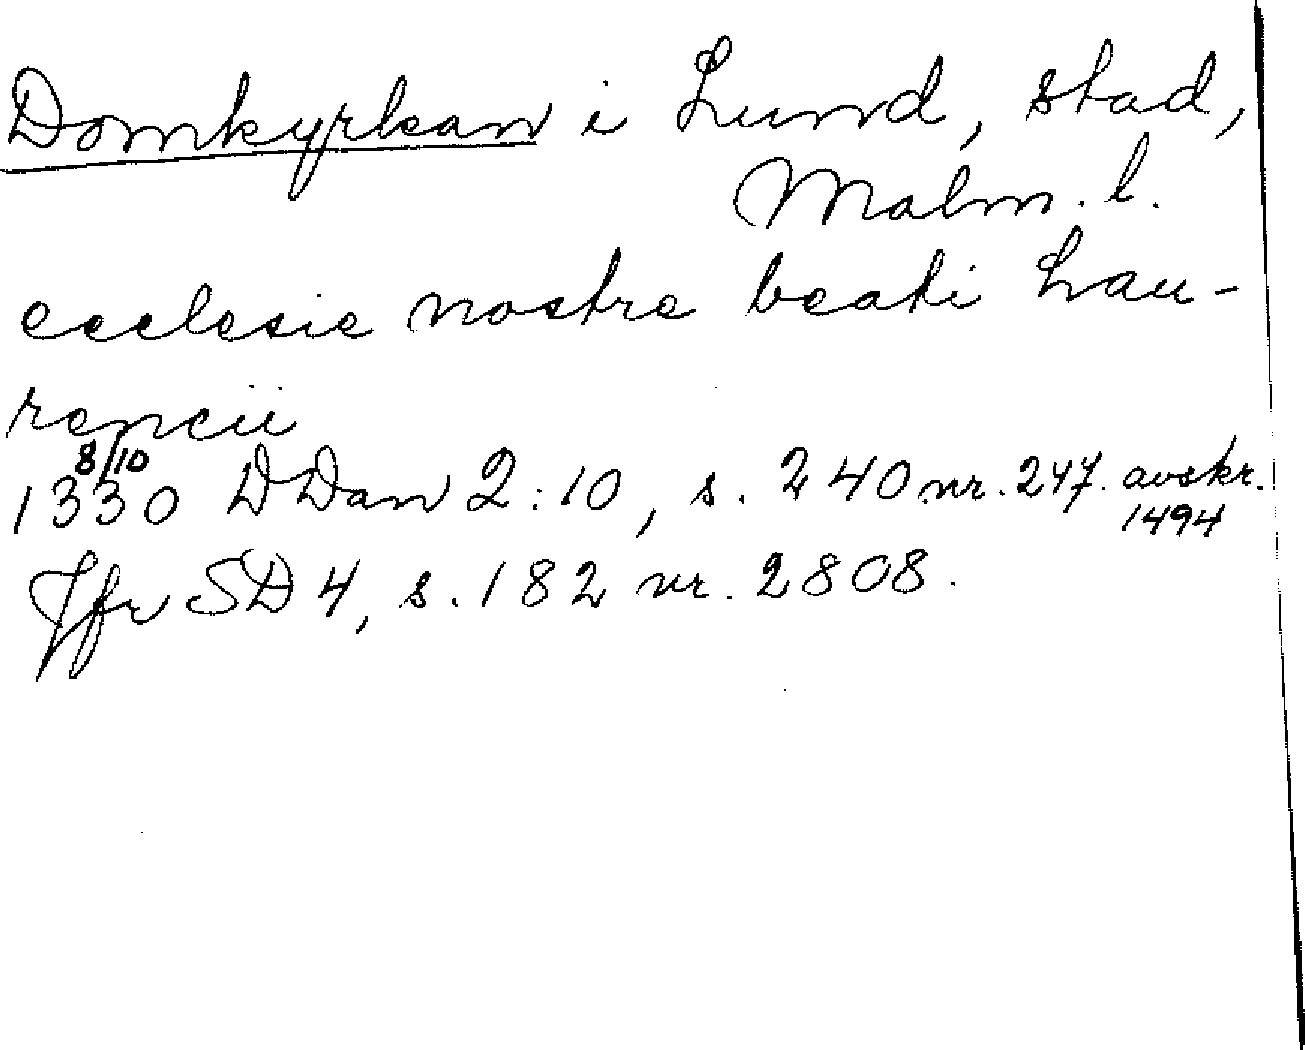 Domkyrkan i Lund, stad,
Malm. l.
ecclesie nostre beati Lau-
rencii
8/10
1330 DDan 2:10, s. 240 nr. 247. avskr.
1494
Jfr SD 4, s. 182 nr. 2808.